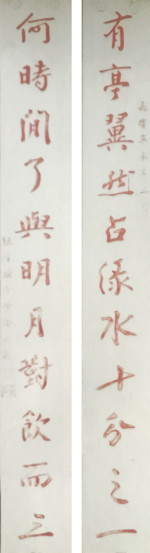 有亭翼然占淥水十分之一
何時閒了與明月對飲而三